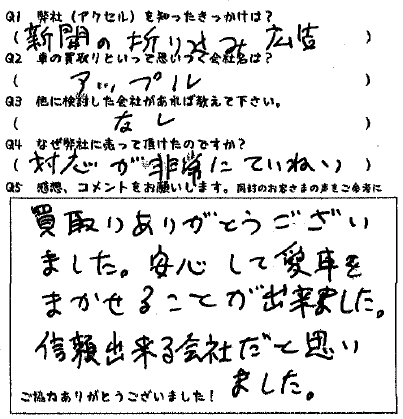 Q1 弊社（アクセル）を知ったきっかけは？
（新聞の折り込み広告）
Q2 車の買取りといって思いつく会社名は？
（アップル）
Q3 他に検討した会社があれば教えて下さい。
（なし）
Q4 なぜ弊社に売って頂けたのですか？
（対応が非常にていねい）
Q5 感想、コメントをお願いします。同封のお客さまの声をご参考に
買取りありがとうござい
ました。安心して愛車を
まかせることが出来ました。
信頼出来る会社だと思い
ました。
ご協力ありがとうございました！